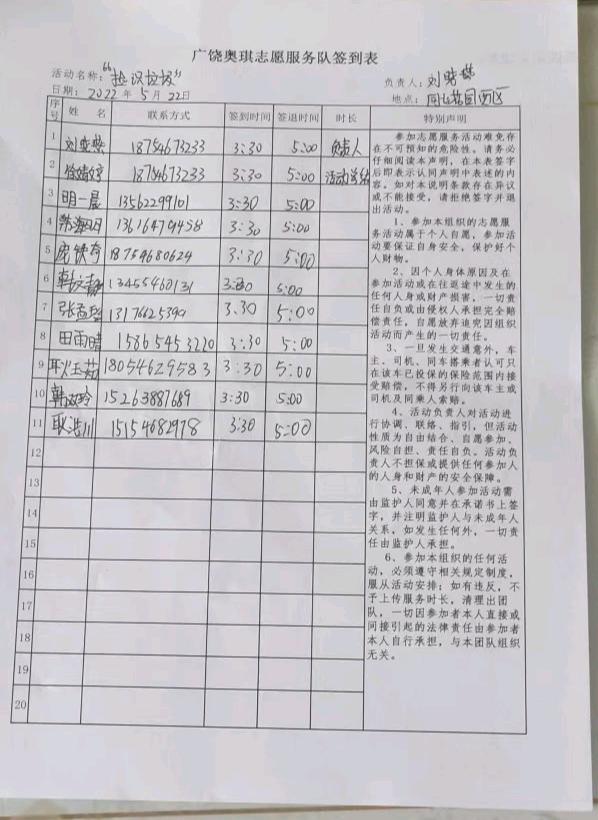 广饶奥琪志愿服务队签到表
活动名称:“捡拾垃圾” 负责人:刘晓燕
日期: 2022 年 5 月 22日 地点: 同和花园西区
序号 姓 名 联系方式 签到时间 签退时间 时长 特别声明
1 刘晓燕 18754673233 3:30 5:00 负责人
2 18754673233 3:30 5:00
3 明一晨 13562299101 3:30 5:00
4 13616479458 3:30 5:00
5 18754680624 3:30 5:00
6 13455460131 3:30 5:00
7 13176625399 3:30 5:00
8 田雨晴 15865453220 3:30 5:00
9 耿玉茹 18054629583 3:30 5:00
10 15263887689 3:30 5:00
11 耿浩川 15154682978 3:30 5:00
12
13
14
15
16
17
18
19
20
参加志愿服务活动难免存
在不可预知的危险性。请务必
仔细阅读本声明,在本表签字
后即表示认同声明中表述的内
容。如对本说明条款存在异议
或不能接受,请拒绝签字并退
出活动。
1、参加本组织的志愿服
务活动属于个人自愿,参加活
动要保证自身安全,保护好个
人财物。
2、因个人身体原因及在
参加活动或在往返途中发生的
任何人身或财产损害,一切责
任自负或由侵权人承担完全赔
偿责任,自愿放弃追究因组织
活动而产生的一切责任。
3、一旦发生交通意外,车
主、司机、同车搭乘者认可只
在该车已投保的保险范围内接
受赔偿,不得另行向该车主或
司机及同乘人索赔。
4、活动负责人对活动进
行协调、联络、指引,但活动
性质为自由结合、自愿参加、
风险自担、责任自负。活动负
责人不担保或提供任何参加人
的人身和财产的安全保障。
5、未成年人参加活动需
由监护人同意并在承诺书上签
字,并注明监护人与未成年人
关系,如发生任何外,一切责
任由监护人承担。
6、参加本组织的任何活
动,必须遵守相关规定制度,
服从活动安排;如有违反,不
予上传服务时长,清理出团
队,一切因参加者本人直接或
间接引起的法律责任由参加者
本人自行承担,与本团队组织
无关。